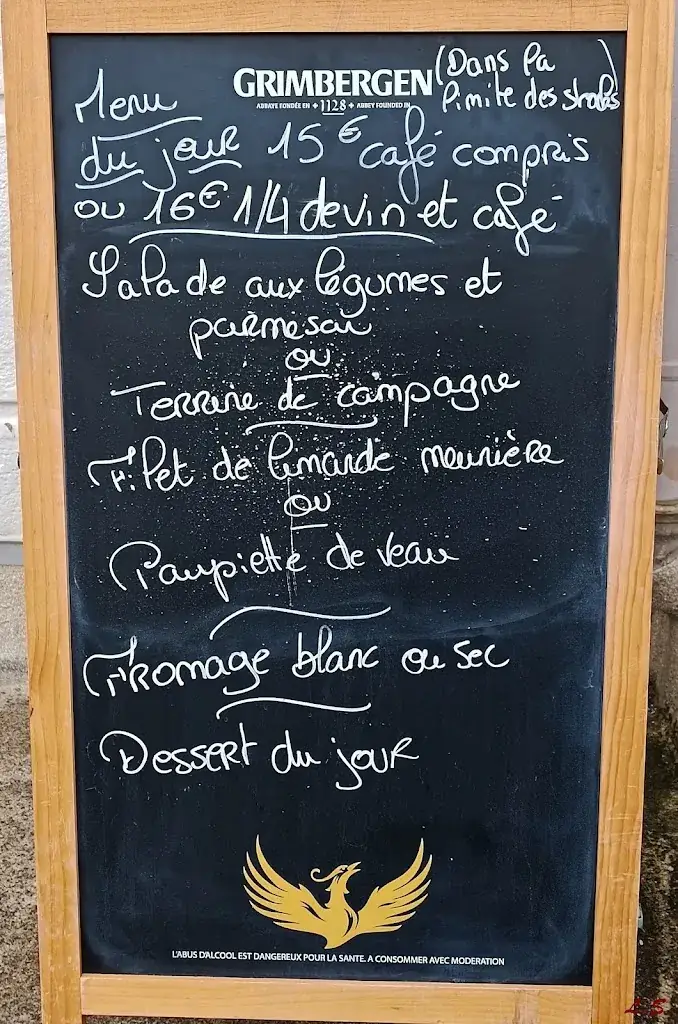 GRIMBERGEN
ABBAYE FONDÉE EN 1128 ABBEY FOUNDED IN
(Dans la
limite des stocks)
Menu
du jour 15€ café compris
ou 16€ 1/4 de vin et café
Salade aux légumes et
parmesan
ou
Terrine de campagne
Filet de limande meunière
ou
Paupiette de veau
Fromage blanc ou sec
Dessert du jour
L'ABUS D'ALCOOL EST DANGEREUX POUR LA SANTE. A CONSOMMER AVEC MODERATION
L S